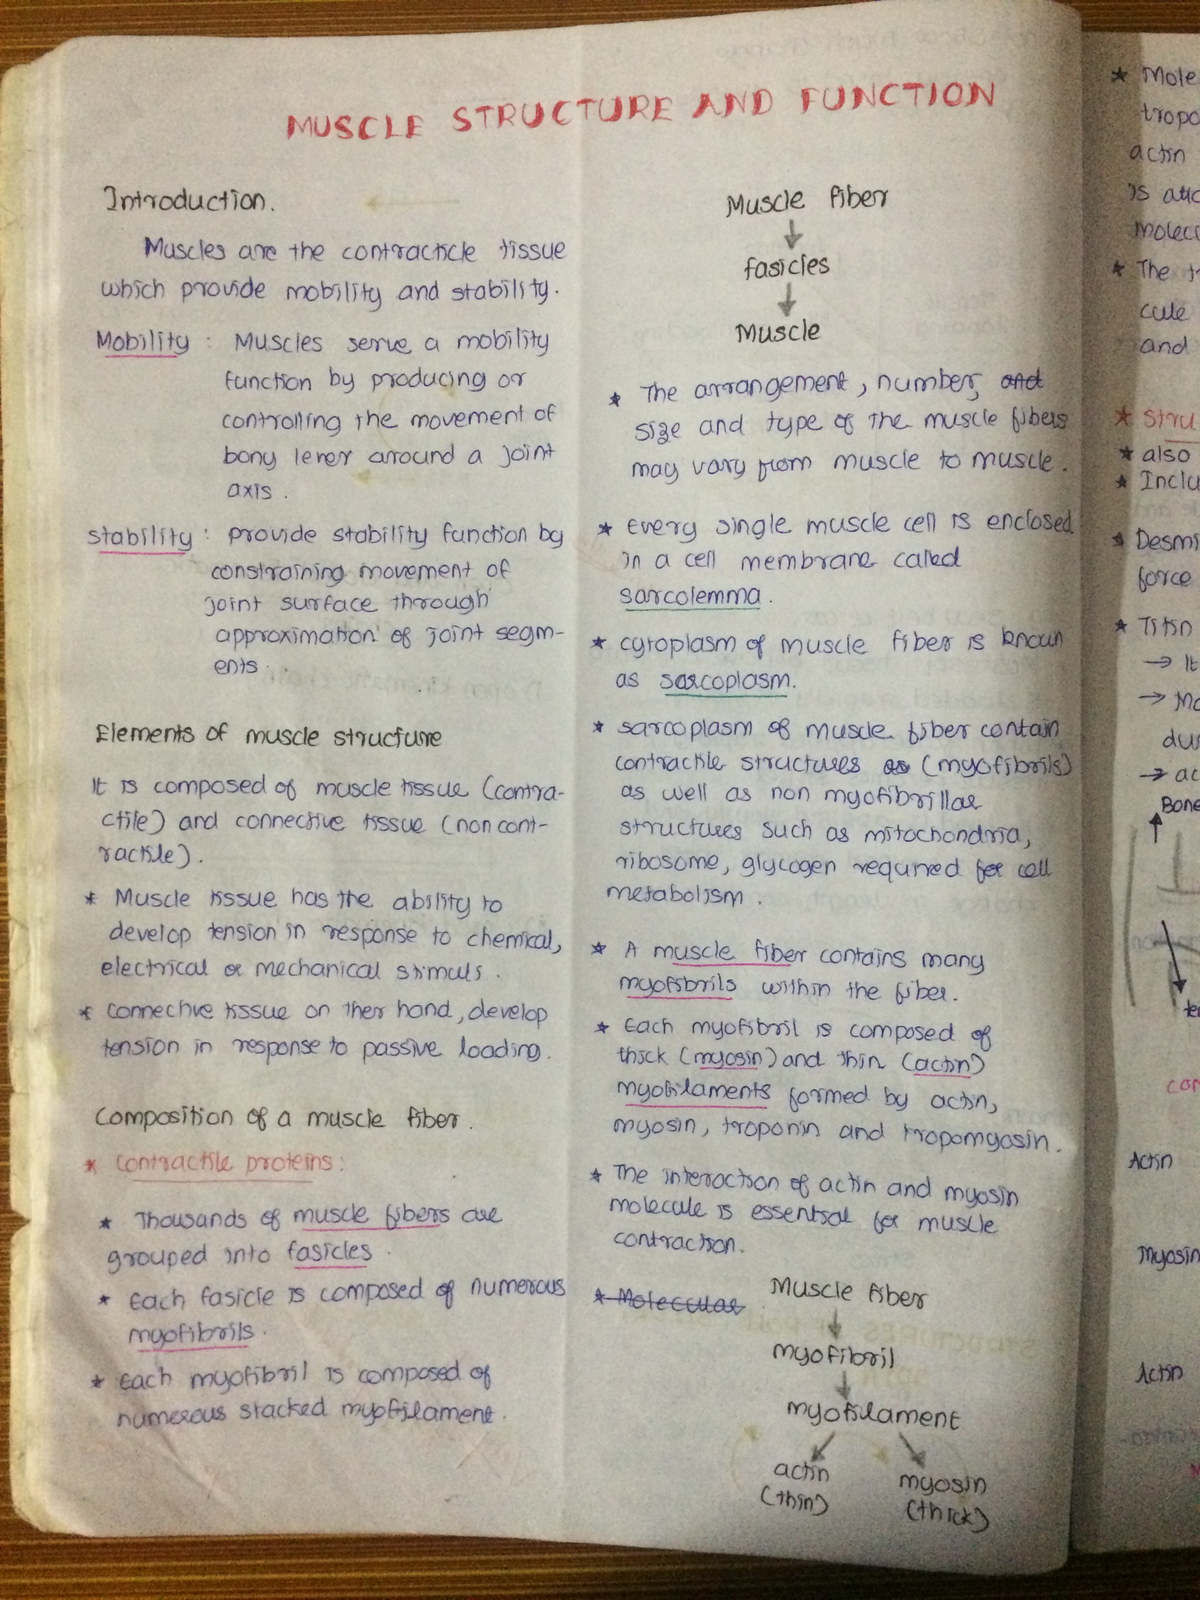 MUSCLE STRUCTURE AND FUNCTION
Introduction.
Muscles are the contracticle tissue
which provide mobility and stability.
Mobility : Muscles serve a mobility
function by producing or
controlling the movement of
bony lever around a joint
axis.
stability : provide stability function by
constraining movement of
joint surface through
approximation of joint segm-
ents.
Elements of muscle structure
It is composed of muscle tissue (contra-
ctile) and connective tissue (non cont-
ractile).
* Muscle tissue has the ability to
develop tension in response to chemical,
electrical or mechanical stimuls.
* connective tissue on ther hand, develop
tension in response to passive loading.
Composition of a muscle fiber.
* contractile proteins:
* Thousands of muscle fibers are
grouped into fasicles.
* Each fasicle is composed of numerous
myofibrils.
* Each myofibril is composed of
numerous stacked myofilament.
Muscle fiber
↓
fasicles
↓
Muscle
* The arrangement, number, and
size and type of the muscle fibers
may vary from muscle to muscle.
* Every single muscle cell is enclosed
in a cell membrane called
sarcolemma.
* cytoplasm of muscle fiber is known
as sarcoplasm.
* sarcoplasm of muscle fiber contain
contractile structures as (myofibrils)
as well as non myofibrillar
structures such as mitochondria,
ribosome, glycogen required for cell
metabolism.
* A muscle fiber contains many
myofibrils within the fiber.
* Each myofibril is composed of
thick (myosin) and thin (actin)
myofilaments formed by actin,
myosin, troponin and tropomyosin.
* The interaction of actin and myosin
molecule is essential for muscle
contraction.
* Moleculae
Muscle fiber
↓
myofibril
↓
myofilament
actin myosin
(thin) (thick)
* Mole
tropo
actin
is
molec
* The
cule
and
* Stru
* also
* Inclu
* Desmi
force
* Titin
→ It
→ Mo
dur
→ ac
Bone
te
con
Actin
Myosin
Actin